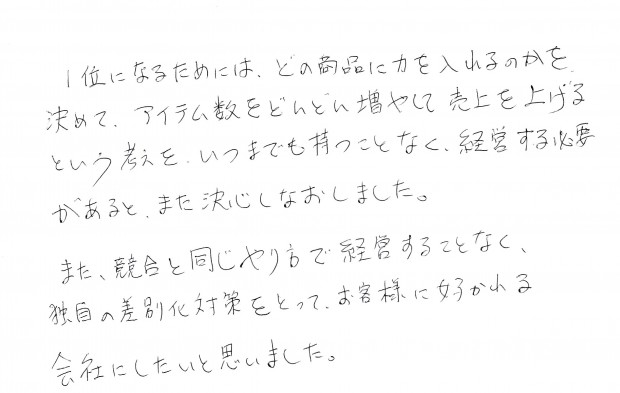 1位になるためには、どの商品に力を入れるのかを
決めて、アイテム数をどんどん増やして売上を上げる
という考えを、いつまでも持つことなく、経営する必要
があると、また決心しなおしました。
また、競合と同じやり方で経営することなく、
独自の差別化対策をとって、お客様に好かれる
会社にしたいと思いました。